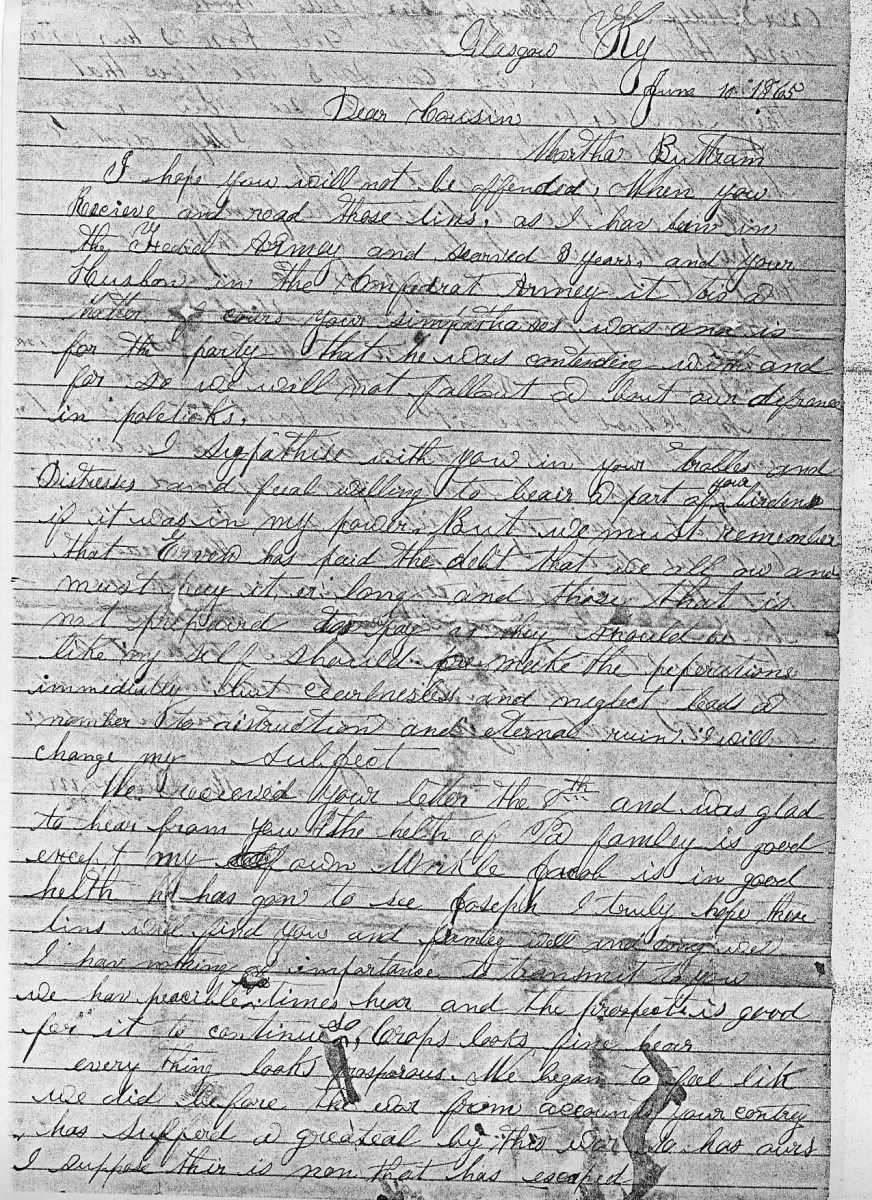 Glasgow Ky
June 10 1865
Dear Cousin
Martha Buttram
I hope you will not be offended, When you
Recieve and read these lins, as I hav ben in
the Fedral Armey and searved 3 years, and your
Husbon in the Confedrat Armey it bis a
matter of cours your simpathaes was and is
for the party that he was contending with and
for so we will not fallout a bout our defrance
in poleticks.
I Sympathise with you in your trobles and
Distresses and feeal willing to beair a part of your birdens
if it was in my power. But we must remember
that Ervin has paid the debt that we all ow and
must pay it er long and those that is
not prepaird to pay as they should be
like my self should make the preperations
immediatly that cearlessness and neglect leads a
number to distruction and eternal ruin. I will
change my Subject
We receved your letter the 8th and was glad
to hear from you the helth of Pa famley is good
except my own Unkle Jacob is in good
helth he has gon to see Joseph I truly hope these
lins will find you and famley well and doing well
I hav nothing of importance to transmit to you
we hav peacible times hear and the prospect is good
for it to continue so, Crops looks fine hear
every thing looks prosporous. We began to feel lik
we did before the war from accounts your contry
has sufferd a greateal by this war so has ours
I suppose thir is non that has escaped